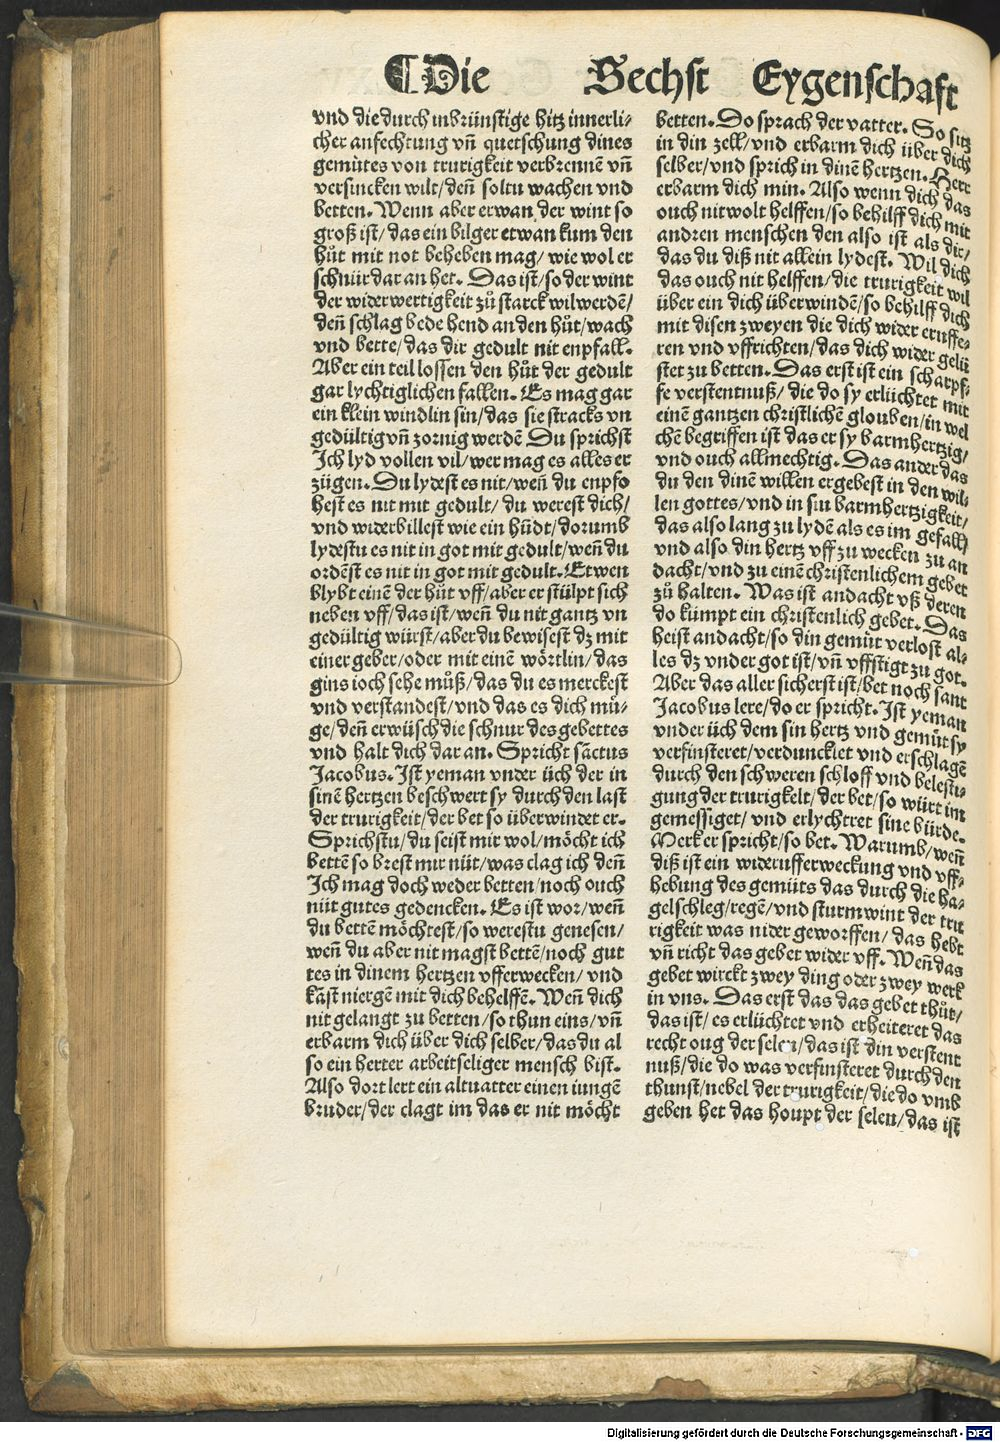 ¶Die Sechst Eygenschaft
vnd die durch inbrünstige hitz innerli⸗
cher anfechtung vn̄ quetschung dines
gemütes von trurigkeit verbrennē vn̄
versincken wilt/ den̄ soltu wachen vnd
betten. Wenn aber erwan der wint so
groß ist/ das ein bilger etwan kum den
hůt mit not beheben mag/ wie wol er
schnür dar an het. Das ist/ so der wint
der widerwertigkeit zů starck wil werdē/
den̄ schlag bede hend an den hůt/ wach
vnd bette/ das dir gedult nit enpfall.
Aber ein teil lossen den hůt der gedult
gar lychtiglichen fallen. Es mag gar
ein klein windlin sin/ das sie stracks vn
gedültig vn̄ zornig werdē. Du sprichst
Ich lyd vollen vil/ wer mag es alles er
zügen. Du lydest es nit/ wen̄ du enpfo
hest es nit mit gedult/ du werest dich/
vnd widerbillest wie ein hūdt/ dorumb
lydestu es nit in got mit gedult/ wen̄ du
ordēst es nit in got mit gedult. Etwen
blybt einē der hůt vff/ aber er stülpt sich
neben vff/ das ist/ wen̄ du nit gantz vn
gedültig würst/ aber du bewisest dz mit
einer geber/ oder mit einē wörtlin/ das
gins ioch sehe můß/ das du es merckest
vnd verstandest/ vnd das es dich mü⸗
ge/ den̄ erwüsch die schnur des gebettes
vnd halt dich dar an. Spricht sāctus
Jacobus. Ist yeman vnder üch der in
sinē hertzen beschwert sy durch den last
der trurigkeit/ der bet so überwindet er.
Sprichstu/ du seist mir wol/ möcht ich
bettē so brest mir nüt/ was clag ich den̄
Ich mag doch weder betten/ noch ouch
nüt gutes gedencken. Es ist wor/ wen̄
du bettē möchtest/ so werestu genesen/
wen̄ du aber nit magst bettē/ noch gut
tes in dinem hertzen vfferwecken/ vnd
kāst niergē mit dich behelffē. Wen̄ dich
nit gelangt zu betten/ so thun eins/ vn̄
erbarm dich über dich selber/ das du al
so ein herter arbeitseliger mensch bist.
Also dort lert ein altuatter einen iungē
bruder/ der clagt im das er nit möcht
betten. Do sprach der vatter. So sitz
in din zell/ vnd erbarm dich über dich
selber/ vnd sprich in dinē hertzen. Herr
erbarm dich min. Also wenn dich das
ouch nit wolt helffen/ so behilff dich mit
andren menschen den also ist als dir/
das du diß nit allein lydest. Wil dich
das ouch nit helffen/ die trurigkeit wil
über ein dich überwindē/ so behilff dich
mit disen zweyen die dich wider ernffe⸗
ren vnd vffrichten/ das dich wider gelü
stet zu betten. Das erst ist ein scharpf⸗
fe verstentnuß/ die do sy erlüchtet mit
einē gantzen christlichē glouben/ in wel
chē begriffen ist das er sy barmhertzig/
vnd ouch allmechtig. Das ander das
du den dinē willen ergebest in den wil⸗
len gottes/ vnd in sin barmhertzigkeit/
das also lang zu lydē als es im gefall/
vnd also din hertz vff zu wecken zu an
dacht/ vnd zu einē christenlichem gebet
zů halten. Was ist andacht vß deren
do kumpt ein christenlich gebet. Das
heist andacht/ so din gemüt verlost al⸗
les dz vnder got ist/ vn̄ vffstigt zu got.
Aber das aller sicherst ist/ bet noch sant
Jacobus lere/ do er spricht. Ist yeman
vnder üch dem sin hertz vnd gemüt sy
verfinsteret/ verduncklet vnd erschlagē
durch den schweren schloff vnd belesti⸗
gung der trurigkeit/ der bet/ so würt im
gemessiget/ vnd erlychtret sine bürde.
Merk er spricht/ so bet. Warumb/ wen̄
diß ist ein widerufferweckung vnd vff⸗
hebung des gemüts das durch die ha⸗
gelschleg/ regē/ vnd sturmwint der tru
rigkeit was nider geworffen/ das hebt
vn̄ richt das gebet wider vff. Wen̄ das
gebet wirckt zwey ding oder zwey werk
in vns. Das erst das das gebet thůt/
das ist/ es erlüchtet vnd erheiteret das
recht oug der selen/ das ist din verstent
nuß/ die do was verfinsteret durch den
thunst/ nebel der trurigkeit/ die do vmb
geben het das houpt der selen/ das ist
Digitalisierung gefördert durch die Deutsche Forschungsgemeinschaft - DFG